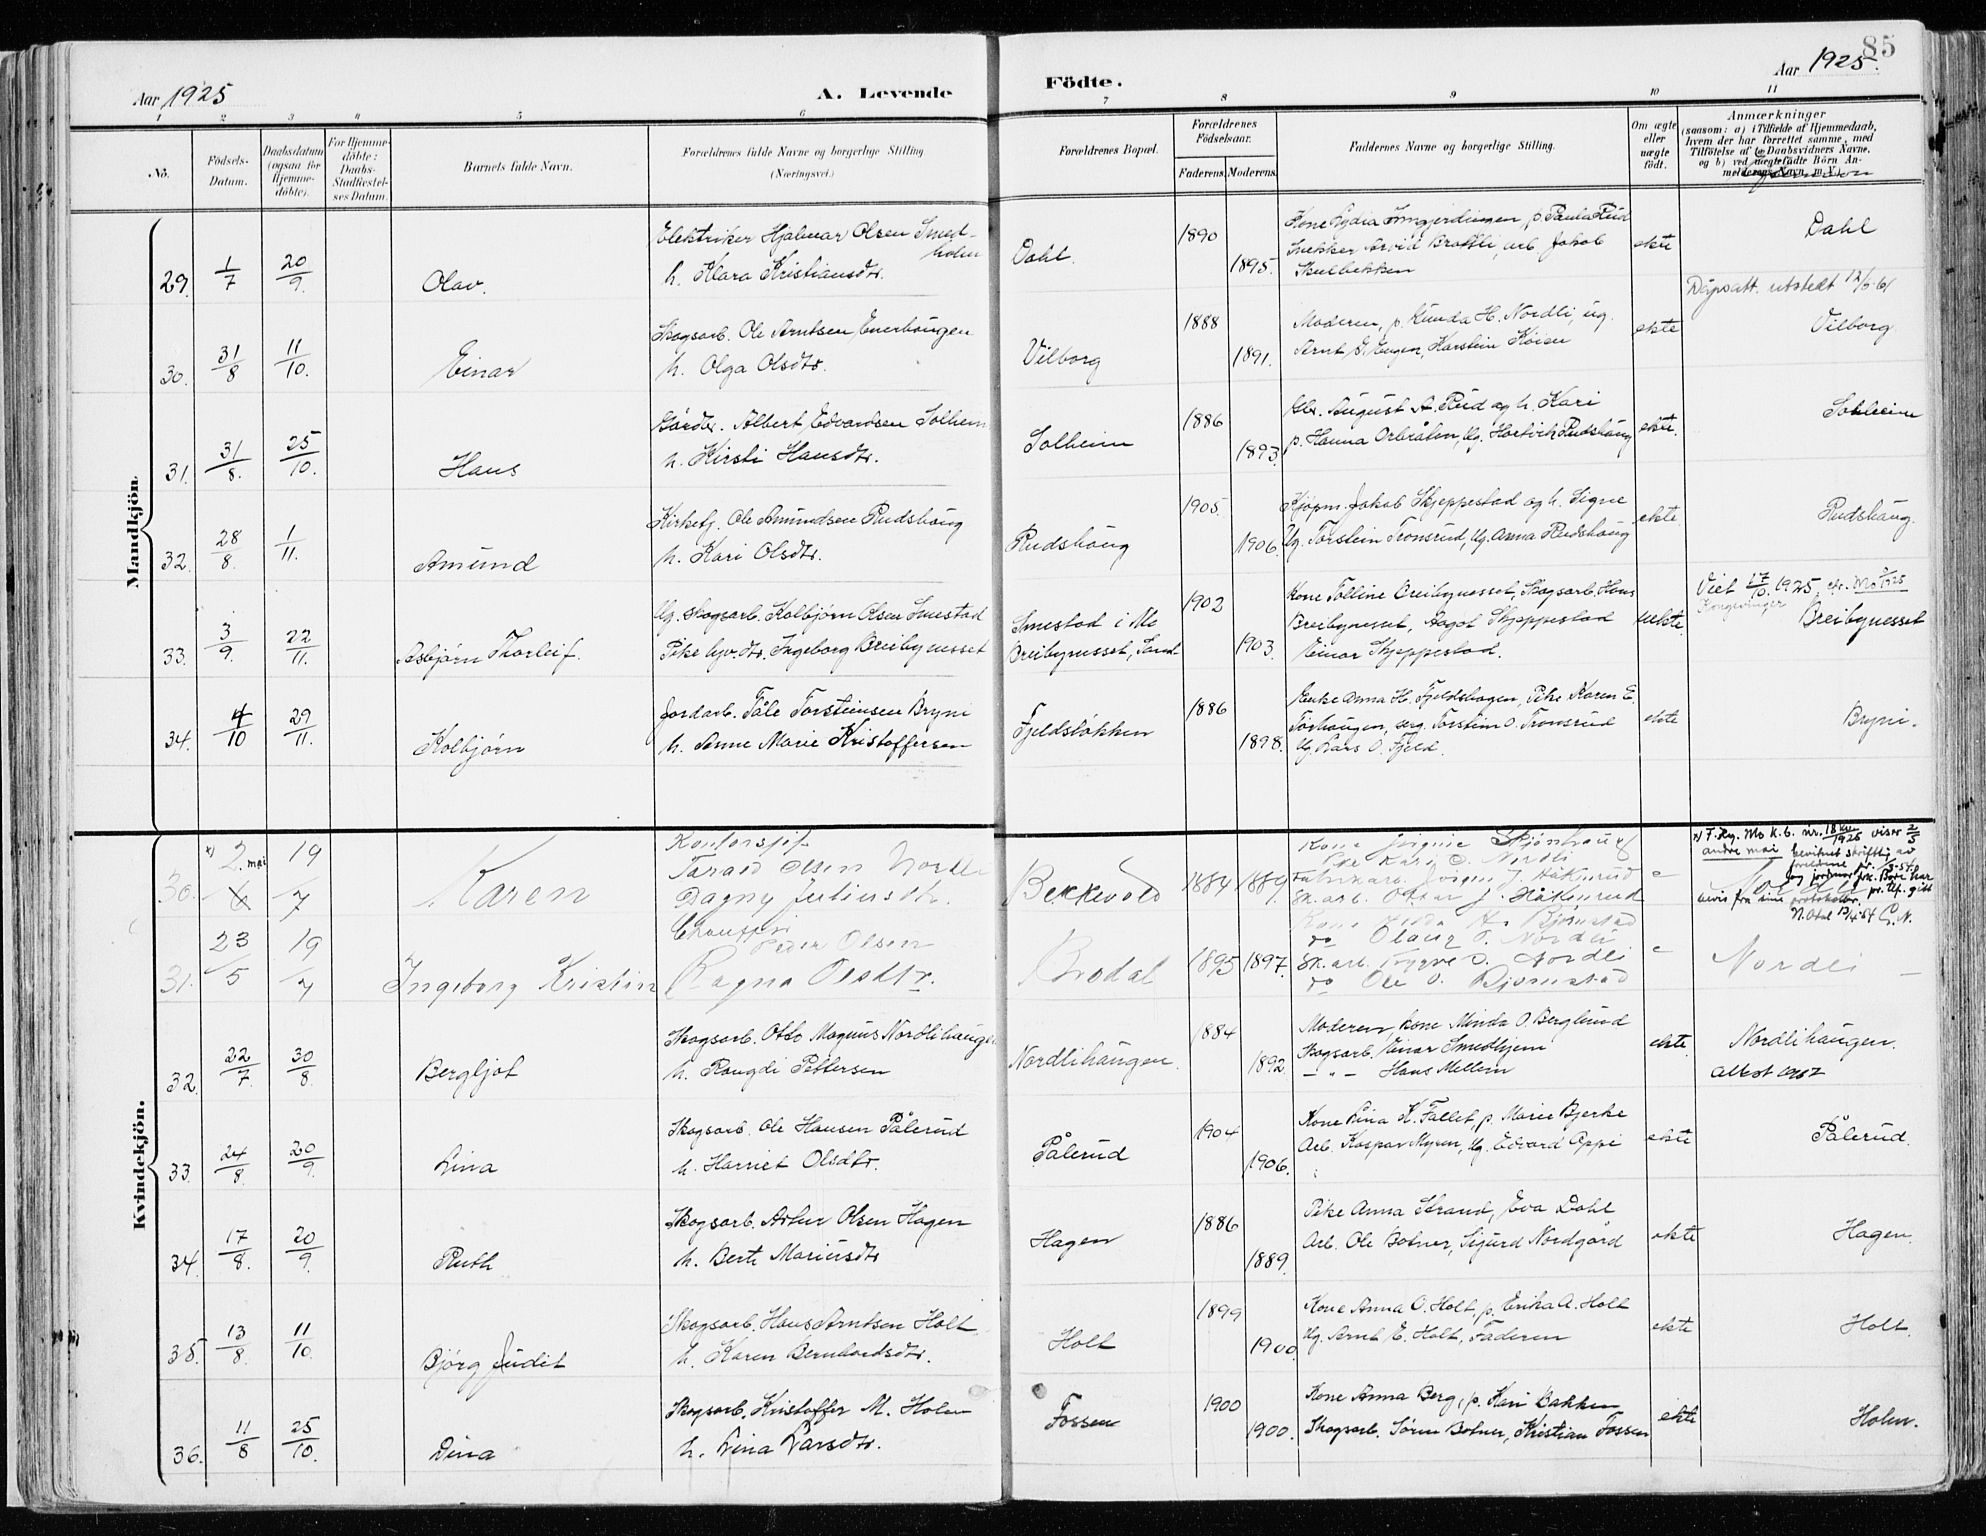 85
Aar 1925
A. Levende Födte.
Aar 1925.
1 2 3 4 5 6 7 8 9 10 11
No.
Födsels-Datum.
Daabsdatum (ogsaa for Hjemmedöbte).
For Hjemmedöbte: Daabs-Stadfæstelses Datum.
Barnets fulde Navn.
Forældrenes fulde Navne og borgerlige Stilling (Næringsvei.)
Forældrenes Bopæl.
Forældrenes Födselsaar.
Faderens. Moderens.
Faddernes Navne og borgerlige Stilling.
Om ægte eller uægte födt.
Anmærkninger
(saasom: a) i Tilfælde af Hjemmedaab, hvem der har forrettet samme, med Tilföielse af Daabsvidners Navne, og b) ved uægtefödte Börn Anmelderens Navn m. V.)
Mandkjön.
29. 1/7 20/9. Olav.
Elektriker Hjalmar Olsen Smedholm
h. Klara Kristiansdtr.
Dahl. 1890 1895.
Kone Lydia Ingjerdingen, p. Paula Rud
Snekker Arvid Bråtli, arb. Jakob
Skulbekken
ekte
Dahl
Dåpsatt. utstedt
30. 31/8 11/10. Einar
Skogsarb. Ole Arntsen Enerhaugen
h. Olga Olsdtr.
Vilborg 1888 1891.
Moderen, p. Gunda H. Nordli, ug.
Arnt E. Engen, Karstein Køien
ekte
Vilborg
31. 31/8. 25/10. Hans
Gårdbr. Albert Edvardsen Solheim
h. Kirsti Hansdtr.
Solheim 1886 1893.
Gbr. August A. Rud og h. Kari
p. Hanna Orbråten, Ug. Hartvik Rudshaug
ekte.
Solheim
32. 28/8. 1/11. Amund
Kirketj. Ole Amundsen Rudshaug
h. Kari Olsdtr.
Rudshaug 1905 1906.
Kjøpm. Jakob Skjeppestad og h. Signe
Ug. Torstein Tronsrud, Ug. Anna Rudshaug
ekte
Rudshaug.
33. 3/9. 22/11. Asbjørn Thorleif.
Ug. skogsarb. Kolbjørn Olsen Smestad
Pike hjv. dtr. Ingeborg Breibynesset
Smestad i Mo
Breibynesset, Sand
1902 1903.
Kone Tolline Breibynesset, Skogsarb. Hans
Breibynesset, Aagot Skjeppestad
Einar Skjeppestad.
uekte.
Viet 17/10. 1925
Kongsvinger
Breibynesset
34. 4/10 29/11. Kolbjørn
Jordarb. Påle Torsteinsen Bryni
h. Anne Marie Kristoffersen
Fjeldsløkken 1886 1898.
Enke Anna H. Fjeldshagen, Pike Karen E.
Torhaugen, Torstein O. Tronsrud
Ug. Lars O. Fjeld.
ekte
Bryni.
Kvindekjön.
30. 2. mai 19/7 Karen
Kontorsjef
Tarald Olsen Nordli
Dagny Juliusdtr.
Bekkevold 1884 1889.
Kone Skjønhaug
Pike Kari O. Nordli
Fabrikarb. J. Håkinrud
Sk. arb. Oskar J. Håkinrud
x) F. reg. Mo k.b. nr. 18 viser 2/5
andre mai bevitnet skriftlig av
foreldrene
31. 23/5 19/7 Ingeborg Kristin
Chauffør
Peder Olsen
Ragna Olsdtr.
Brodal 1895 1897.
Kone Hilda H. Bjørnstad
do Olaug T. Nordli
Sk. arb. Trygve O. Nordli
do Ole O. Bjørnstad
Nordli
32. 22/7. 30/8. Bergljot
Skogsarb. Otto Magnus Nordlihaugen
h. Raugdi Pettersen
Nordlihaugen. 1884 1892.
Moderen, kone Minda O. Berglund
Skogsarb. Einar Smedhjem
— " — Hans Mellem
ekte.
Nordlihaugen.
Attest 1942
33. 24/8. 20/9. Lina
Skogsarb. Ole Hansen Pålerud
h. Harriet Olsdtr.
Pålerud 1904 1906.
Kone Lina K. Fallet, p. Marie Bjerke
Arb. Kaspar Myren, Ug. Edvard Oppi
ekte
Pålerud.
34. 17/8. 20/9. Ruth
Skogsarb. Artur Olsen Hagen
h. Berte Mariusdtr.
Hagen 1886 1889.
Pike Anna Strand, Eva Dahl
Arb. Ole Botner, Sigurd Nordgård
ekte
Hagen.
35. 13/8. 11/10. Bjørg Judit
Skogsarb. Hans Arntsen Holt
h. Karen Bernhardsdtr.
Holt 1899 1900.
Kone Anna O. Holt, p. Erika A. Holt
Ug. Arnt E. Holt, Faderen
ekte
Holt.
36. 11/8 25/10. Dina
Skogsarb. Kristoffer M. Holen
h. Lina Larsdtr.
Fossen 1900 1900.
Kone Anna Berg, p. Kari Bakken
Skogsarb. Søren Botner, Kristian Fossen
ekte
Holen.